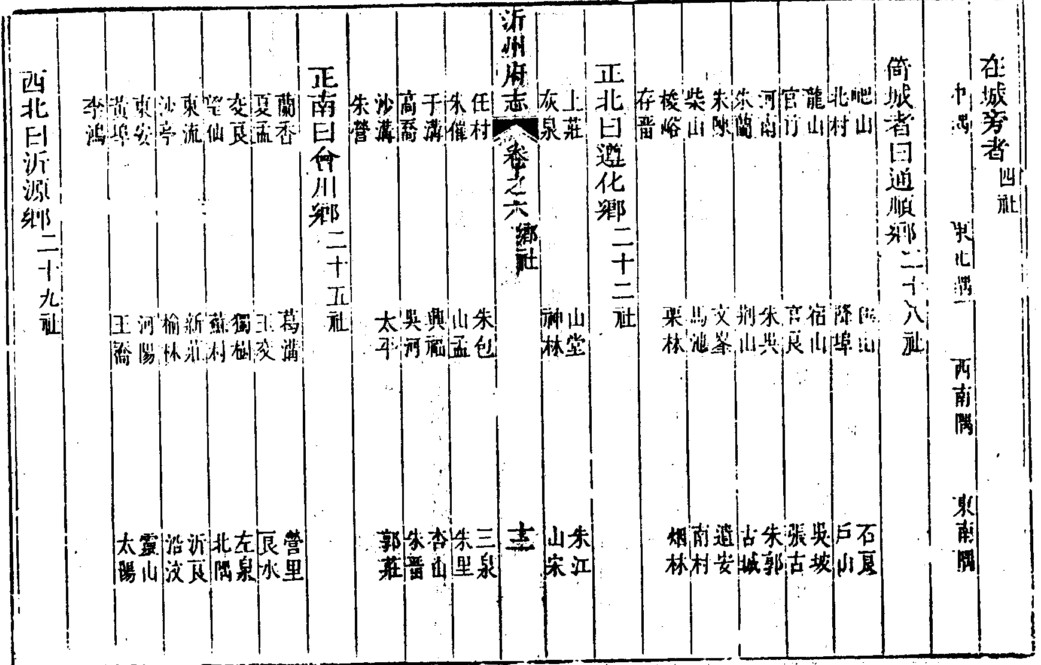 在城旁者 四社
中隅 東北隅 西南隅 東南隅
倚城者曰通順鄉 二十八社
岜山 石艮
北村 降埠 戶山
龍山 宿山 吳坡
官艮 張古
河南 朱郭
朱蘭 荆山 古城
朱陳 文峯 道安
柴山 馬池 南村
梭峪 栗林 烟林
存晋
正北曰遵化鄉 二十二社
上莊 山堂 朱江
灰泉 神林 山宋
沂州府志 卷之六 鄉社
任村 朱包 三泉
山孟 朱里
于溝 興福 杏山
高喬 吳河 朱晋
沙溝 太平 郭莊
朱營
正南曰會川鄉 二十五社
蘭香 葛溝 營里
夏孟 王交 艮水
獨樹 左泉
望仙 蘇村 北隅
東流 新莊 沂艮
沙亭 榆林 沿汶
東安 河陽 靈山
黃埠 王喬 太陽
李鴻
西北曰沂源鄉 二十九社